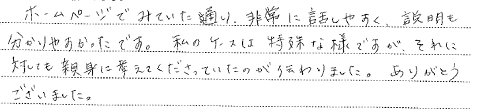 ホームページでみていた通り、非常に話しやすく、説明も
分かりやすかったです。私のケースは特殊な様ですが、それに
対しても親身に考えてくださっていたのが伝わりました。ありがとう
ございました。